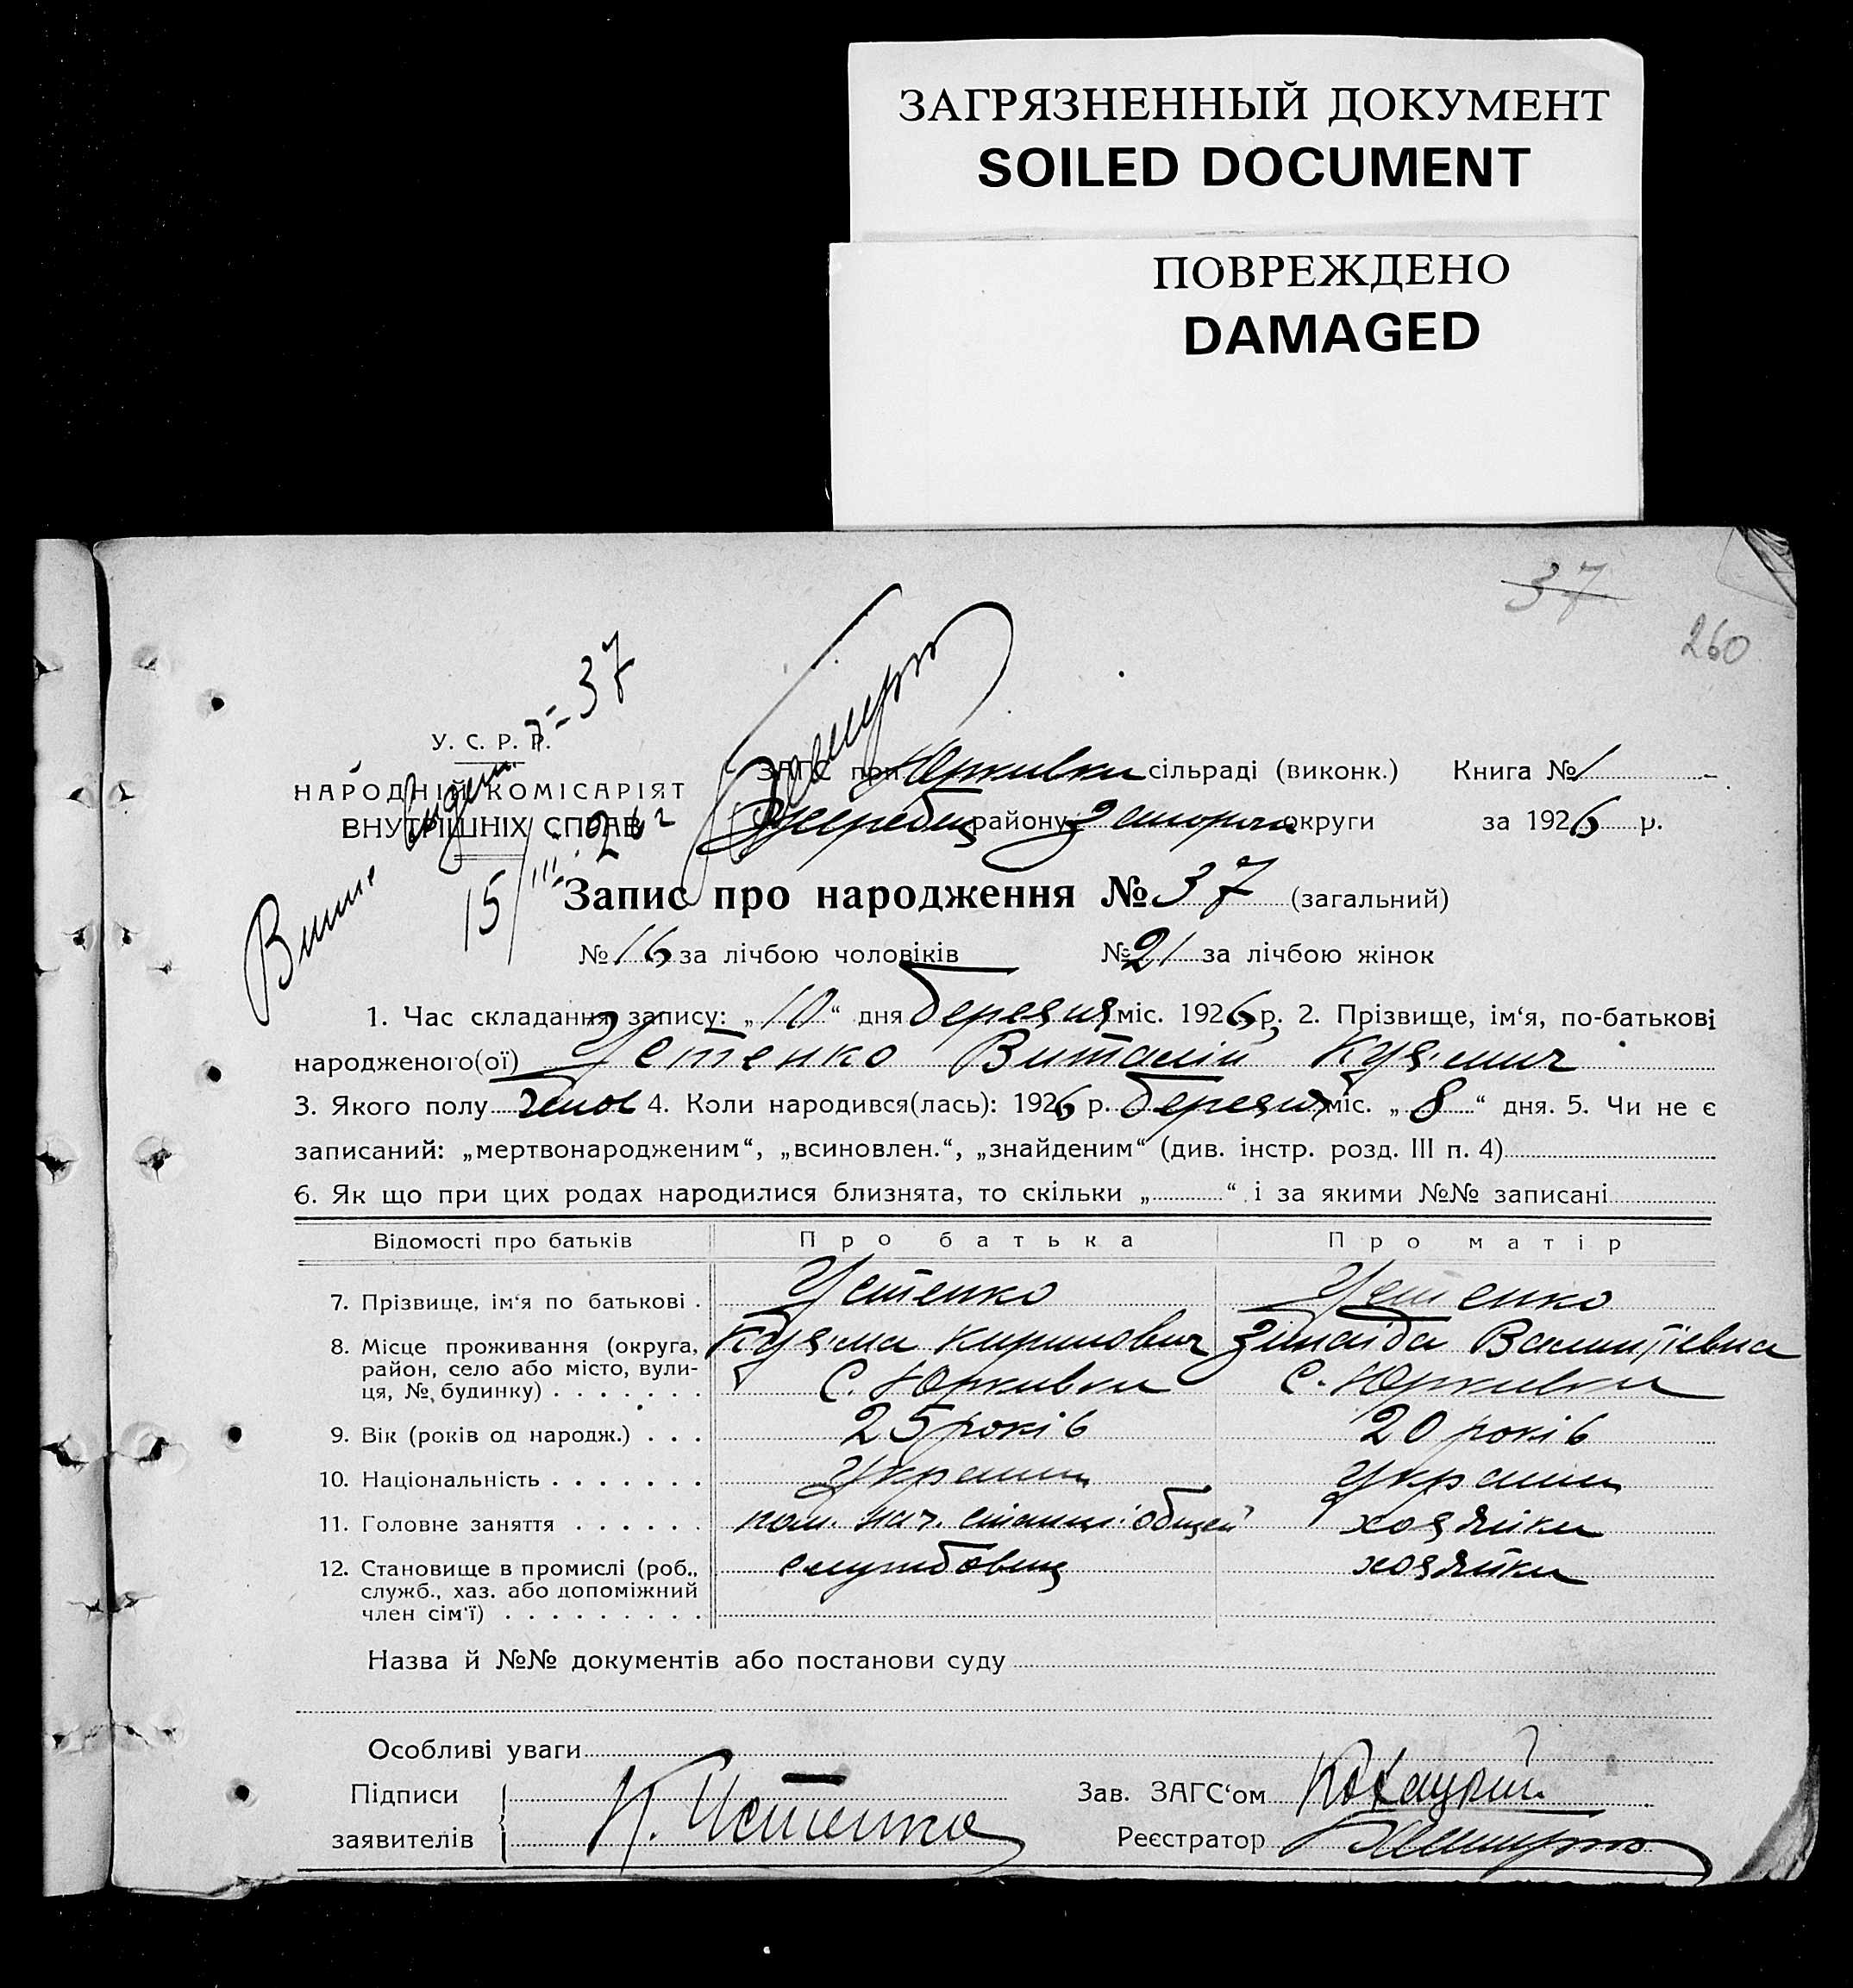 ЗАГРЯЗНЕННЫЙ ДОКУМЕНТ
SOILED DOCUMENT
ПОВРЕЖДЕНО
DAMAGED
37
260
37
У. С. Р. Р.
НАРОДНІЙ КОМІСАРІЯТ
ВНУТРІШНІХ СПРАВ
15/III 26 г
ЗАГС при Юркивки сільраді (виконк.) Книга № 1
Жеребец району Запорож округи за 1926 р.
Запис про народження № 37 (загальний)
№ 16 за лічбою чоловіків № 21 за лічбою жінок
1. Час складання запису: „10“ дня березня міс. 1926 р. 2. Прізвище, ім‘я, по-батькові
народженого(ої) Устенко Виталій Кузьмич
3. Якого полу чолов 4. Коли народився(лась): 1926 р. березня міс. „8“ дня. 5. Чи не є
записаний: „мертвонародженим“, „всиновлен.“, „знайденим“ (див. інстр. розд. III п. 4)
6. Як що при цих родах народилися близнята, то скільки „ “ і за якими №№ записані
Відомості про батьків Про батька Про матір
7. Прізвище, ім‘я по батькові . Устенко Устенко
8. Місце проживання (округа, Кузьма Кирилович Зінаіда
район, село або місто, вули-
ця, №, будинку) . . . . . . . С. Юркивки С. Юркивки
9. Вік (років од народж.) . . . 25 років 20 років
10. Національність . . . . . . . Украин Украин
11. Головне заняття . . . . . . пом. нач. станц. хозяйка
12. Становище в промислі (роб., службовец хозяйка
служб., хаз. або допоміжний
член сім‘ї) . . . . . . . . .
Назва й №№ документів або постанови суду
Особливі уваги
Підписи Зав. ЗАГС‘ом
заявителів К. Устенко Реєстратор